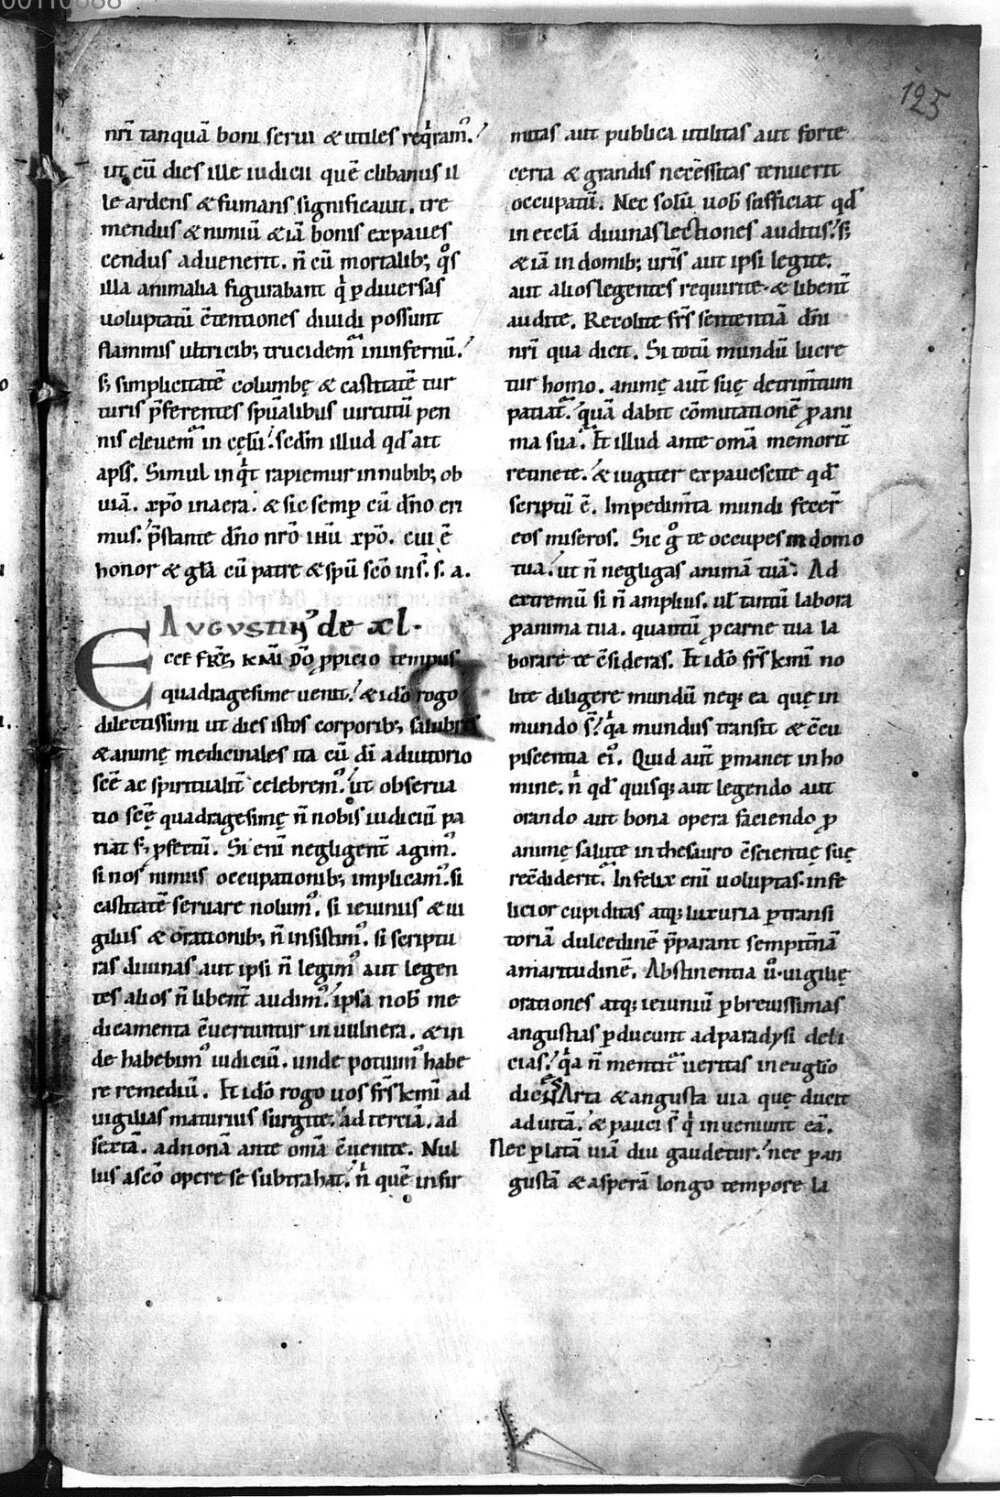 125
nrī tanquā boni serui & utiles reqͥramꝰ.
ut cū dies ille iudicii quē clibanus il
le ardens & fumans significauit. tre
mendus & nimiū &iā bonis expaues
cendus aduenerit. n̄ cū mortalib; qͦs
illa animalia figurabant qͥ ꝑ diuersas
uoluptatū c̄tentiones diuidi possunt
flammis ultricib; trucidemꝰ in infernū.
s; simplicitatē columbę & castitatē tur
turis p̄ferentes spūalibus uirtutū pen
nis eleuemꝰ in cęlū. sedm illud qđ ait
apłs. Simul inqͥt rapiemur in nubib; ob
uiā. xp̄o in aera. & sic semꝑ cū dn̄o eri
mus. p̄stante dn̄o nrō ihū xp̄o. cui ē
honor & glā cū patre & spū scō in s. s. a.
AVGVSTINꝰ de xl.
Ecce frē; kmī dō ꝓpicio tempus
quadragesime uenit. & idō rogo
dilectissimi ut dies istos corporib; salubres
& animę medicinales ita cū dī adiutorio
scē ac spiritualit̄ celebremꝰ. ut obserua
tio scę̄ quadragesimę n̄ nobis iudiciū pa
riat s; ꝓfectū. Si enī negligent̄ agimꝰ.
si nos nimiis occupationib; implicamꝰ. si
castitatē seruare nolumꝰ. si ieiuniis & ui
giliis & orationib; n̄ insistimꝰ. si scriptu
ras diuinas aut ipsi n̄ legimꝰ aut legen
tes alios n̄ libent̄ audimꝰ. ipsa nob̄ me
dicamenta c̄uertuntur in uulnera. & in
de habebimꝰ iudiciū. unde potuimꝰ habe
re remediū. Et idō rogo uos frs̄ kmī ad
uigilias maturius surgite. ad terciā. ad
sextā. ad nonā ante om̄a c̄uenite. Nul
lus a scō opere se subtrahat. n̄ quē infir
mitas aut publica utilitas aut forte
certa & grandis necessitas tenuerit
occupatū. Nec solū uob̄ sufficiat qđ
in ecclā diuinas lectiones auditis. s;
&iā in domib; urīs aut ipsi legite.
aut alios legentes requirite. & libent̄
audite. Recolite frs̄ sententiā dn̄i
nrī qua dicit. Si totū mundū lucre
tur homo. animę aut̄ suę detrim̄tum
patiat᷑. quā dabit cōmutationē ꝓ ani
ma sua. Et illud ante om̄a memorit̄
retinete. & iugiter expauescite qđ
scriptū ē. Impedim̄ta mundi fecer̄
eos miseros. Sic gͦ te occupes in domo
tua. ut n̄ negligas animā tuā. Ad
extremū si n̄ amplius. ul̄ tantū labora
ꝓ anima tua. quantū ꝓ carne tua la
borare te c̄sideras. Et idō frs̄ kmī no
lite diligere mundū neq; ea quę in
mundo s̄. qͥa mundus transit & c̄cu
piscentia eiꝰ. Quid aut̄ ꝑmanet in ho
mine. n̄ qđ quisq; aut legendo aut
orando aut bona opera faciendo ꝓ
animę salute in thesauro c̄scientię suę
recōdiderit. Infelix enī uoluptas. infe
licior cupiditas atq; luxuria ꝑ transi
toriā dulcedinē p̄parant sempit̄nā
amaritudinē. Abstinentia ū. uigilię
orationes atq; ieiuniū ꝑ breuissimas
angustias ꝑducunt ad paradysi deli
cias. qͥa n̄ mentit᷑ ueritas in euglīo
dicēs. Arta & angusta uia quę ducit
ad uitā. & pauci s̄ qͥ inueniunt eā.
Nec ꝑ latā uiā diu gaudetur. nec ꝑ an
gustā & asperā longo tempore la